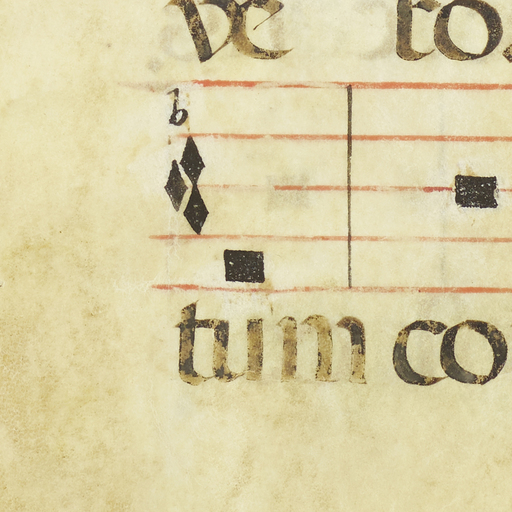 ve to
b
tum co